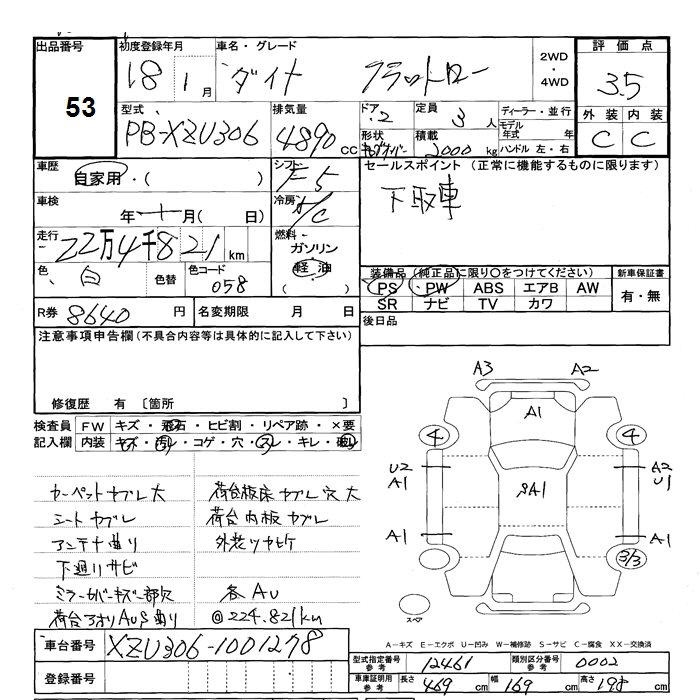 出品番号
53
初度登録年月
18 1月
車名・グレード
ダイナ フラットロー
2WD・4WD
評価点
3.5
外装 内装
C C
型式
PB-XZU306
排気量
4890 CC
ドア 2
形状
定員 3人
積載 2000 kg
ディーラー・並行
モデル年式 年
ハンドル 左・右
車歴
自家用・( )
シフト F5
セールスポイント (正常に機能するものに限ります)
下取車
車検
年 月( 日)
冷房 A/C
走行
22万4千821km
燃料
ガソリン
軽油
( )
色 白 色替
色コード 058
装備品(純正品に限り○をつけてください)
PS PW ABS エアB AW
SR ナビ TV カワ
新車保証書
有・無
R券 8640 円
名変期限 月 日
後日品
注意事項申告欄(不具合内容等は具体的に記入して下さい)
修復歴 有 〔箇所 〕
検査員記入欄
FW キズ・飛石・ヒビ割・リペア跡・×要
内装 キズ・汚レ・コゲ・穴・スレ・キレ・
カーペットヤブレ大
シートヤブレ
アンテナ曲り
下廻りサビ
ミラーカバーキズ一部欠
荷台アオリAUS曲り
荷台板床ヤブレ穴大
荷台内板ヤブレ
外装ツヤビケ
各AU
◎224.821km
A3 A2
A1
4 4
U2 A1
A2 U1
A1
A1
3/3
スペア
A-キズ E-エクボ U-凹み W-補修跡 S-サビ C-腐食 XX-交換済
車台番号 XZU306-1001278
登録番号
型式指定番号参考 12461
類別区分番号参考 0002
車庫証明用参考
長さ 469 cm
幅 169 cm
高さ 198 cm